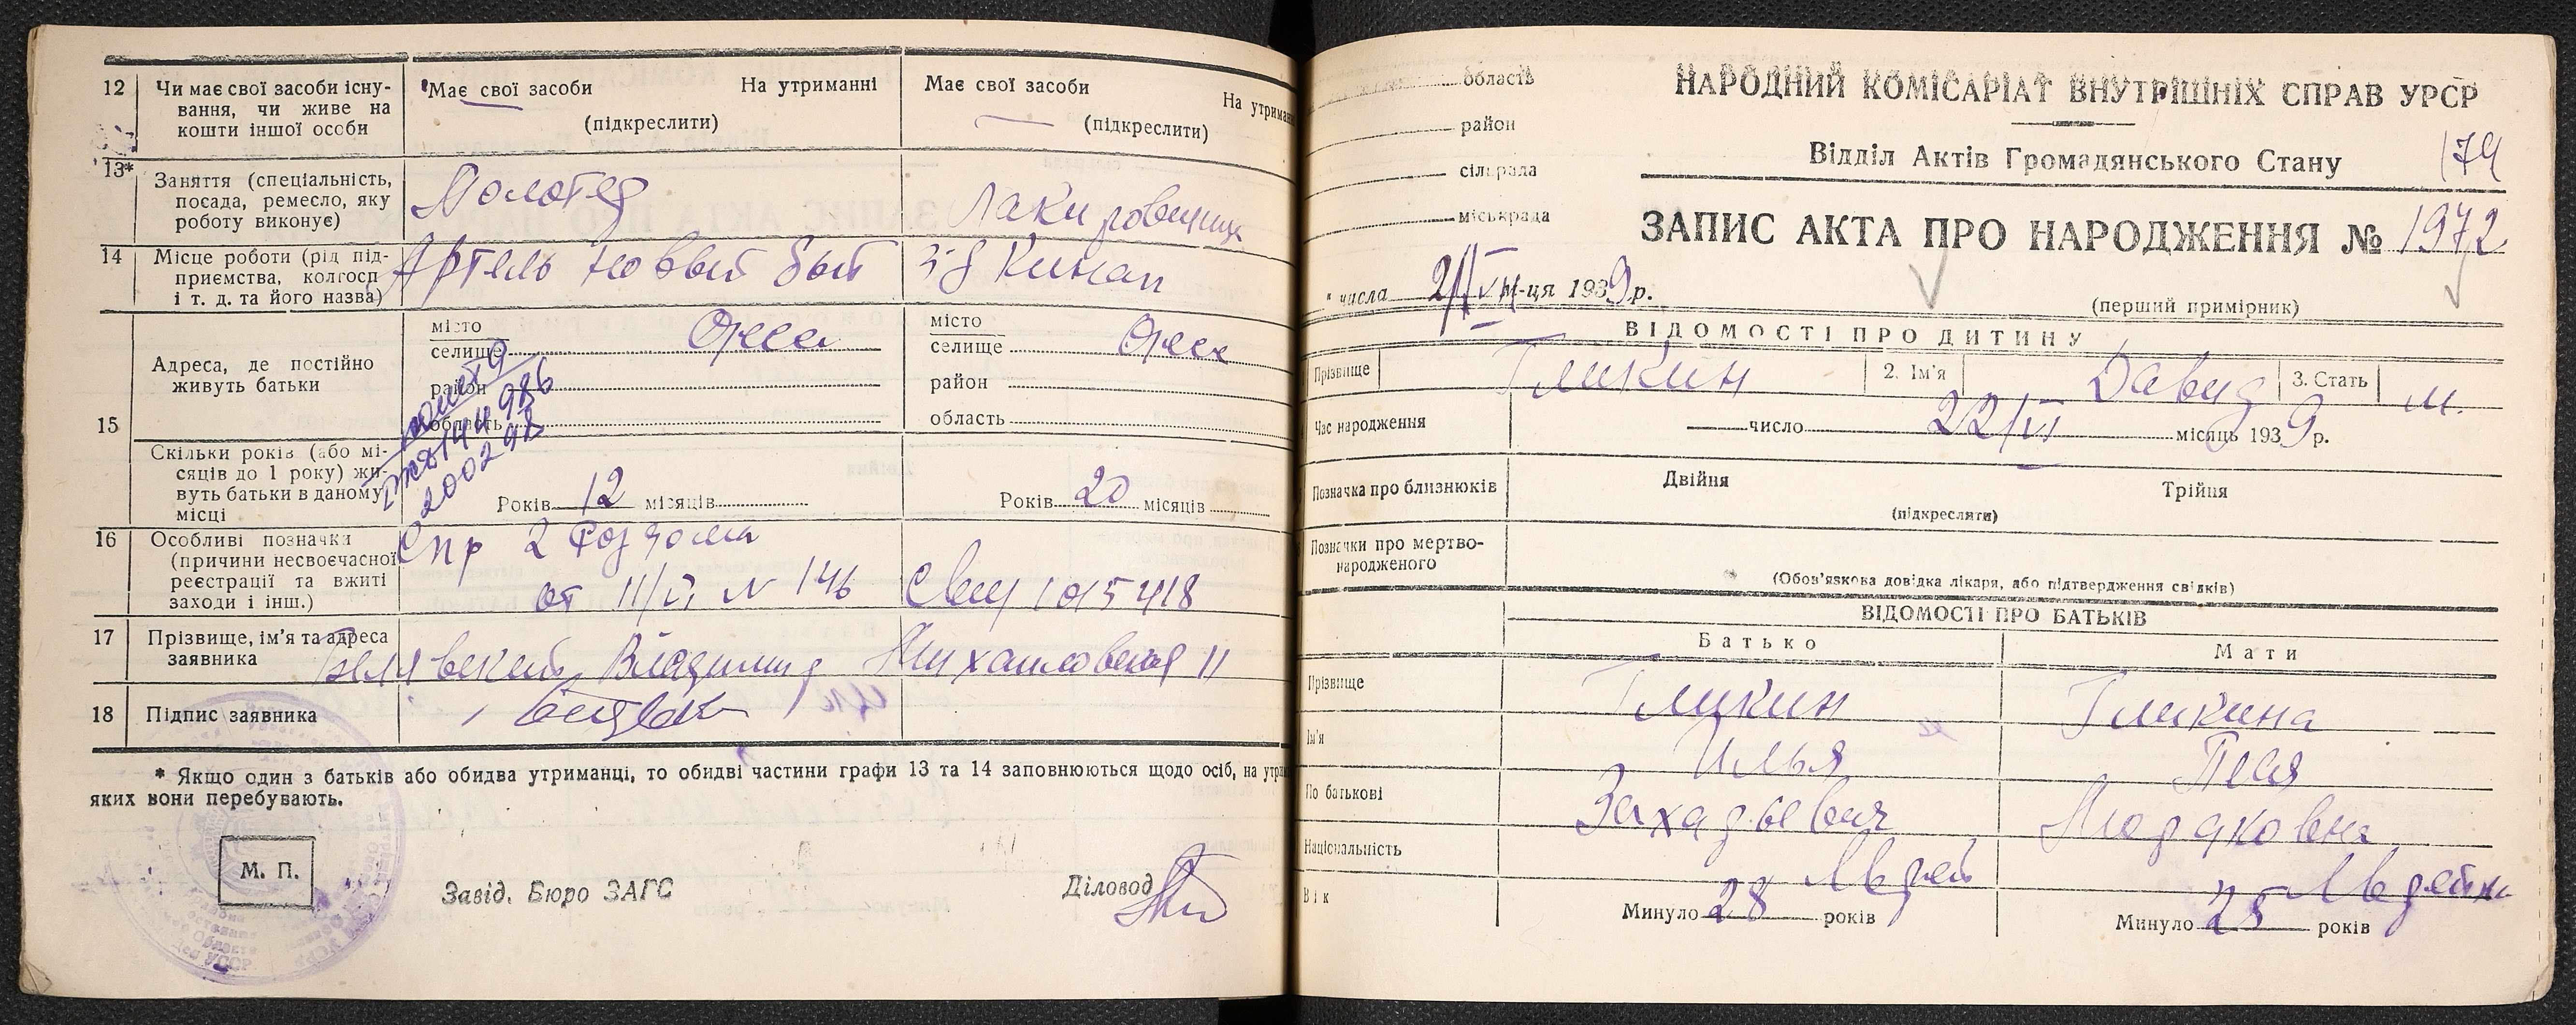 12 Чи має свої засоби існу-
вання, чи живе на
кошти іншої особи
Має свої засоби На утриманні
(підкреслити)
Має свої засоби На утриман
(підкреслити)
13* Заняття (спеціальність,
посада, ремесло, яку
роботу виконує)
Полотер
Лакировщица
14 Місце роботи (рід під-
приємства, колгосп
і т. д. та його назва)
Артель Новый быт
з-д Кинап
15 Адреса, де постійно
живуть батьки
місто
селище Одесса
район
область
місто
селище Одесса
район
область
144 986
200298
Скільки років (або мі-
сяців до 1 року) жи-
вуть батьки в даному
місці
Років 12 місяців
Років 20 місяців
16 Особливі позначки
(причини несвоєчасної
реєстрації та вжиті
заходи і інш.)
Спр 2 Роддома
от 11/VI N 146 Свид 1015418
17 Прізвище, ім'я та адреса
заявника
Белявский Владимир Михайловская 11
18 Підпис заявника
* Якщо один з батьків або обидва утриманці, то обидві частини графи 13 та 14 заповнюються щодо осіб, на утри
яких вони перебувають.
М. П.
Завід. Бюро ЗАГС
Діловод
область
район
сільрада
міськрада
НАРОДНИЙ КОМІСАРІАТ ВНУТРІШНІХ СПРАВ УРСР
Відділ Актів Громадянського Стану
174
ЗАПИС АКТА ПРО НАРОДЖЕННЯ № 1972
" числа м-ця 1939 р.
(перший примірник)
ВІДОМОСТІ ПРО ДИТИНУ
Прізвище Гликин 2. Ім'я Давид 3. Стать м.
Час народження число 22/VI місяць 1939 р.
Позначка про близнюків Двійня Трійня
(підкреслити)
Позначки про мертво-
народженого
(Обов'язкова довідка лікаря, або підтвердження свідків)
ВІДОМОСТІ ПРО БАТЬКІВ
Батько Мати
Прізвище Гликин Гликина
Ім'я Илья Песя
По батькові Захарьевич Мордковна
Національність Еврей Еврейка
Вік Минуло 28 років Минуло 25 років